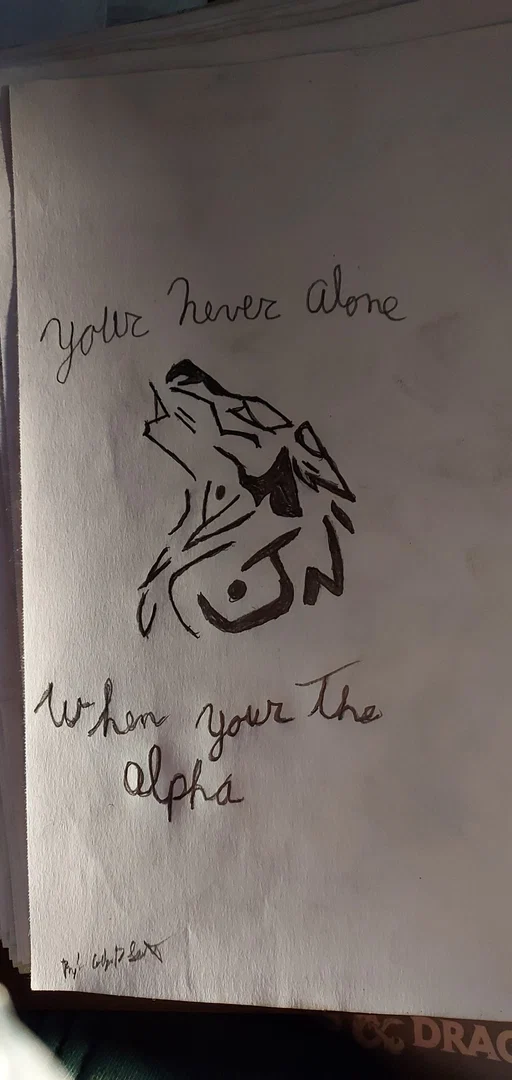 your never alone
When your The
alpha
By:
DRAC